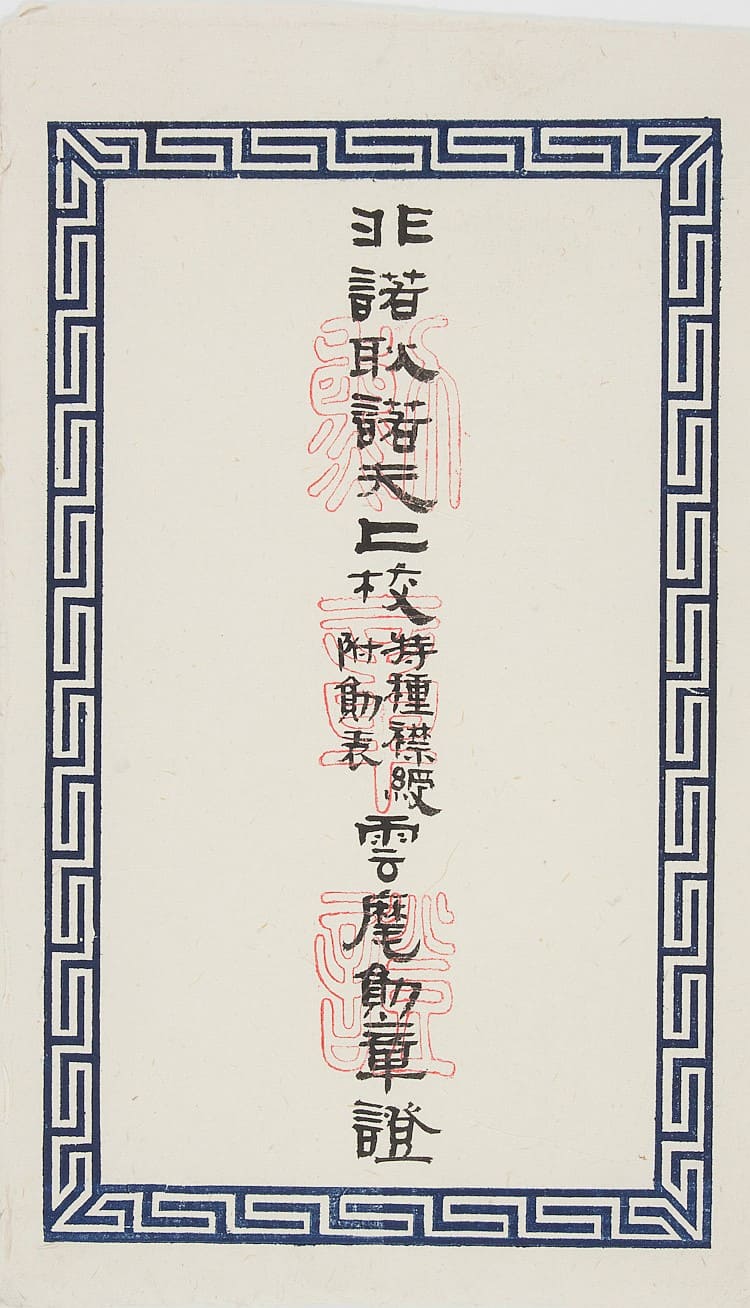 非諾耿諾夫上校
特種襟綬
附勛表
雲麾勛章證